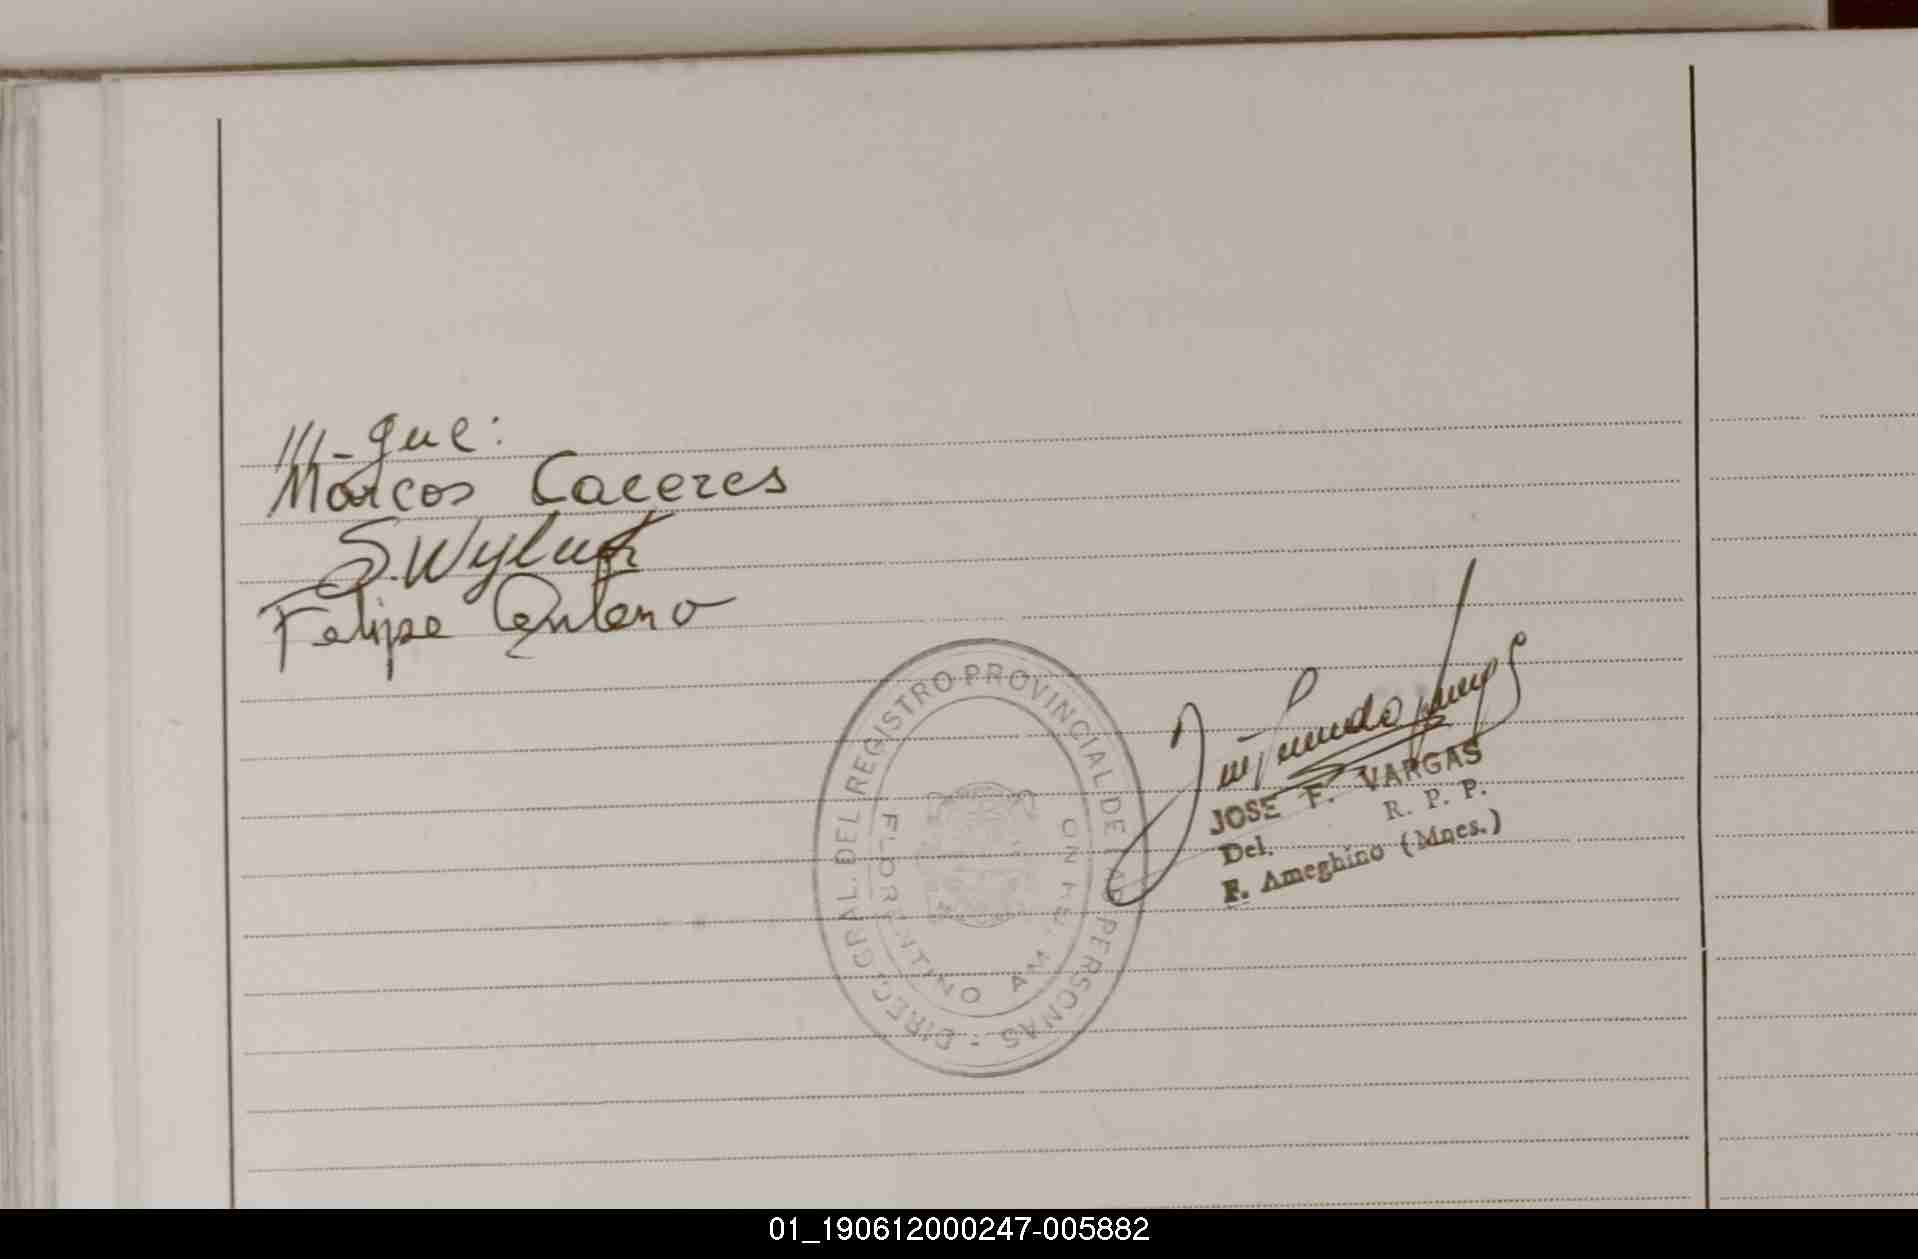 ///-que:
Marcos Caceres
S. Wyluk
Felipe Centeno
DIREC. GRAL. DEL REGISTRO PROVINCIAL DE LAS PERSONAS -
FLORENTINO AMEGHINO
JOSE F. VARGAS
Del. R. P. P.
F. Ameghino (Mnes.)
01_190612000247-005882